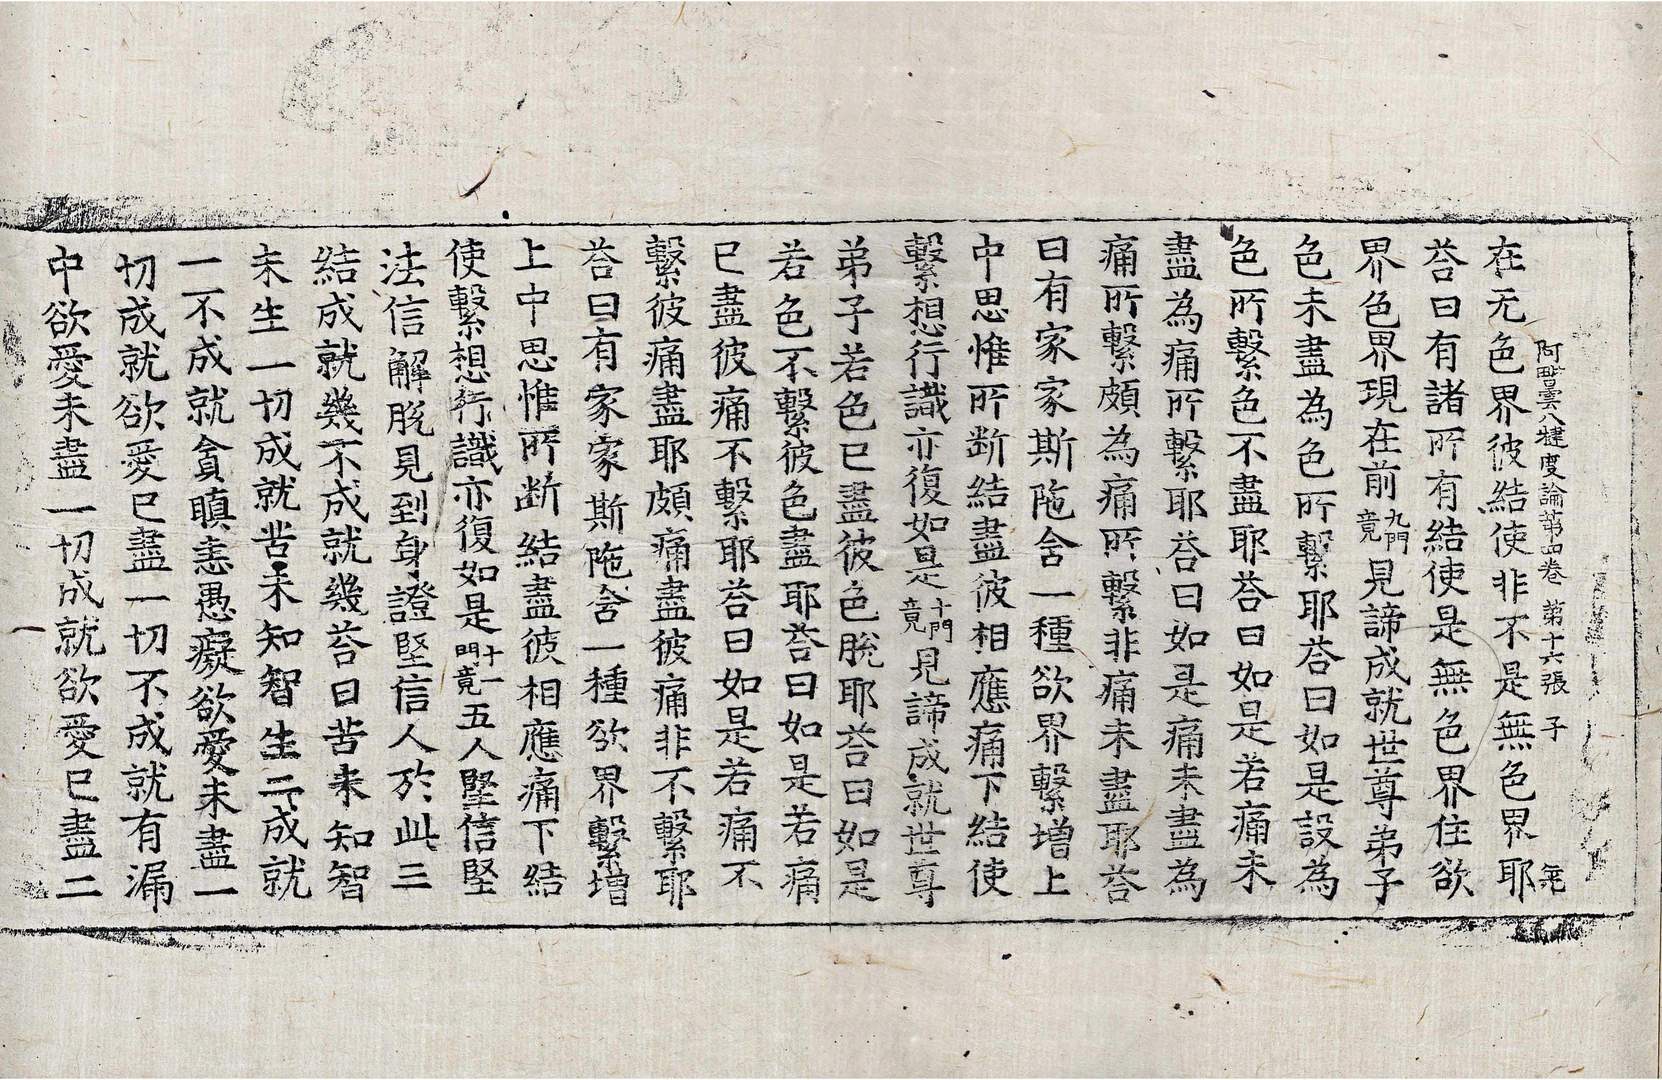 阿毗曇八犍度論第四卷 第十六張 子
在无色界彼結使非不是無色界耶
荅曰有諸所有結使是無色界住欲
界色界現在前九門竟見諦成就世尊弟子
色未盡為色所繫耶荅曰如是設為
色所繫色不盡耶荅曰如是若痛未
盡為痛所繫耶荅曰如是痛未盡為
痛所繫頗為痛所繫非痛未盡耶荅
曰有家家斯陁含一種欲界繫增上
中思惟所断結盡彼相應痛下結使
繫想行識亦復如是十門竟見諦成就世尊
弟子若色已盡彼色脫耶荅曰如是
若色不繫彼色盡耶荅曰如是若痛
已盡彼痛不繫耶荅曰如是若痛不
繫彼痛盡耶頗痛盡彼痛非不繫耶
荅曰有家家斯陁含一種欲界繫增
上中思惟所断結盡彼相應痛下結
使繫想行識亦復如是十一門竟五人堅信堅
法信解脫見到身證堅信人於此三
結成就幾不成就幾荅曰苦未知智
未生一切成就苦未知智生二成就
一不成就貪瞋恚愚癡欲愛未盡一
切成就欲愛已盡一切不成就有漏
中欲愛未盡一切成就欲愛已盡二